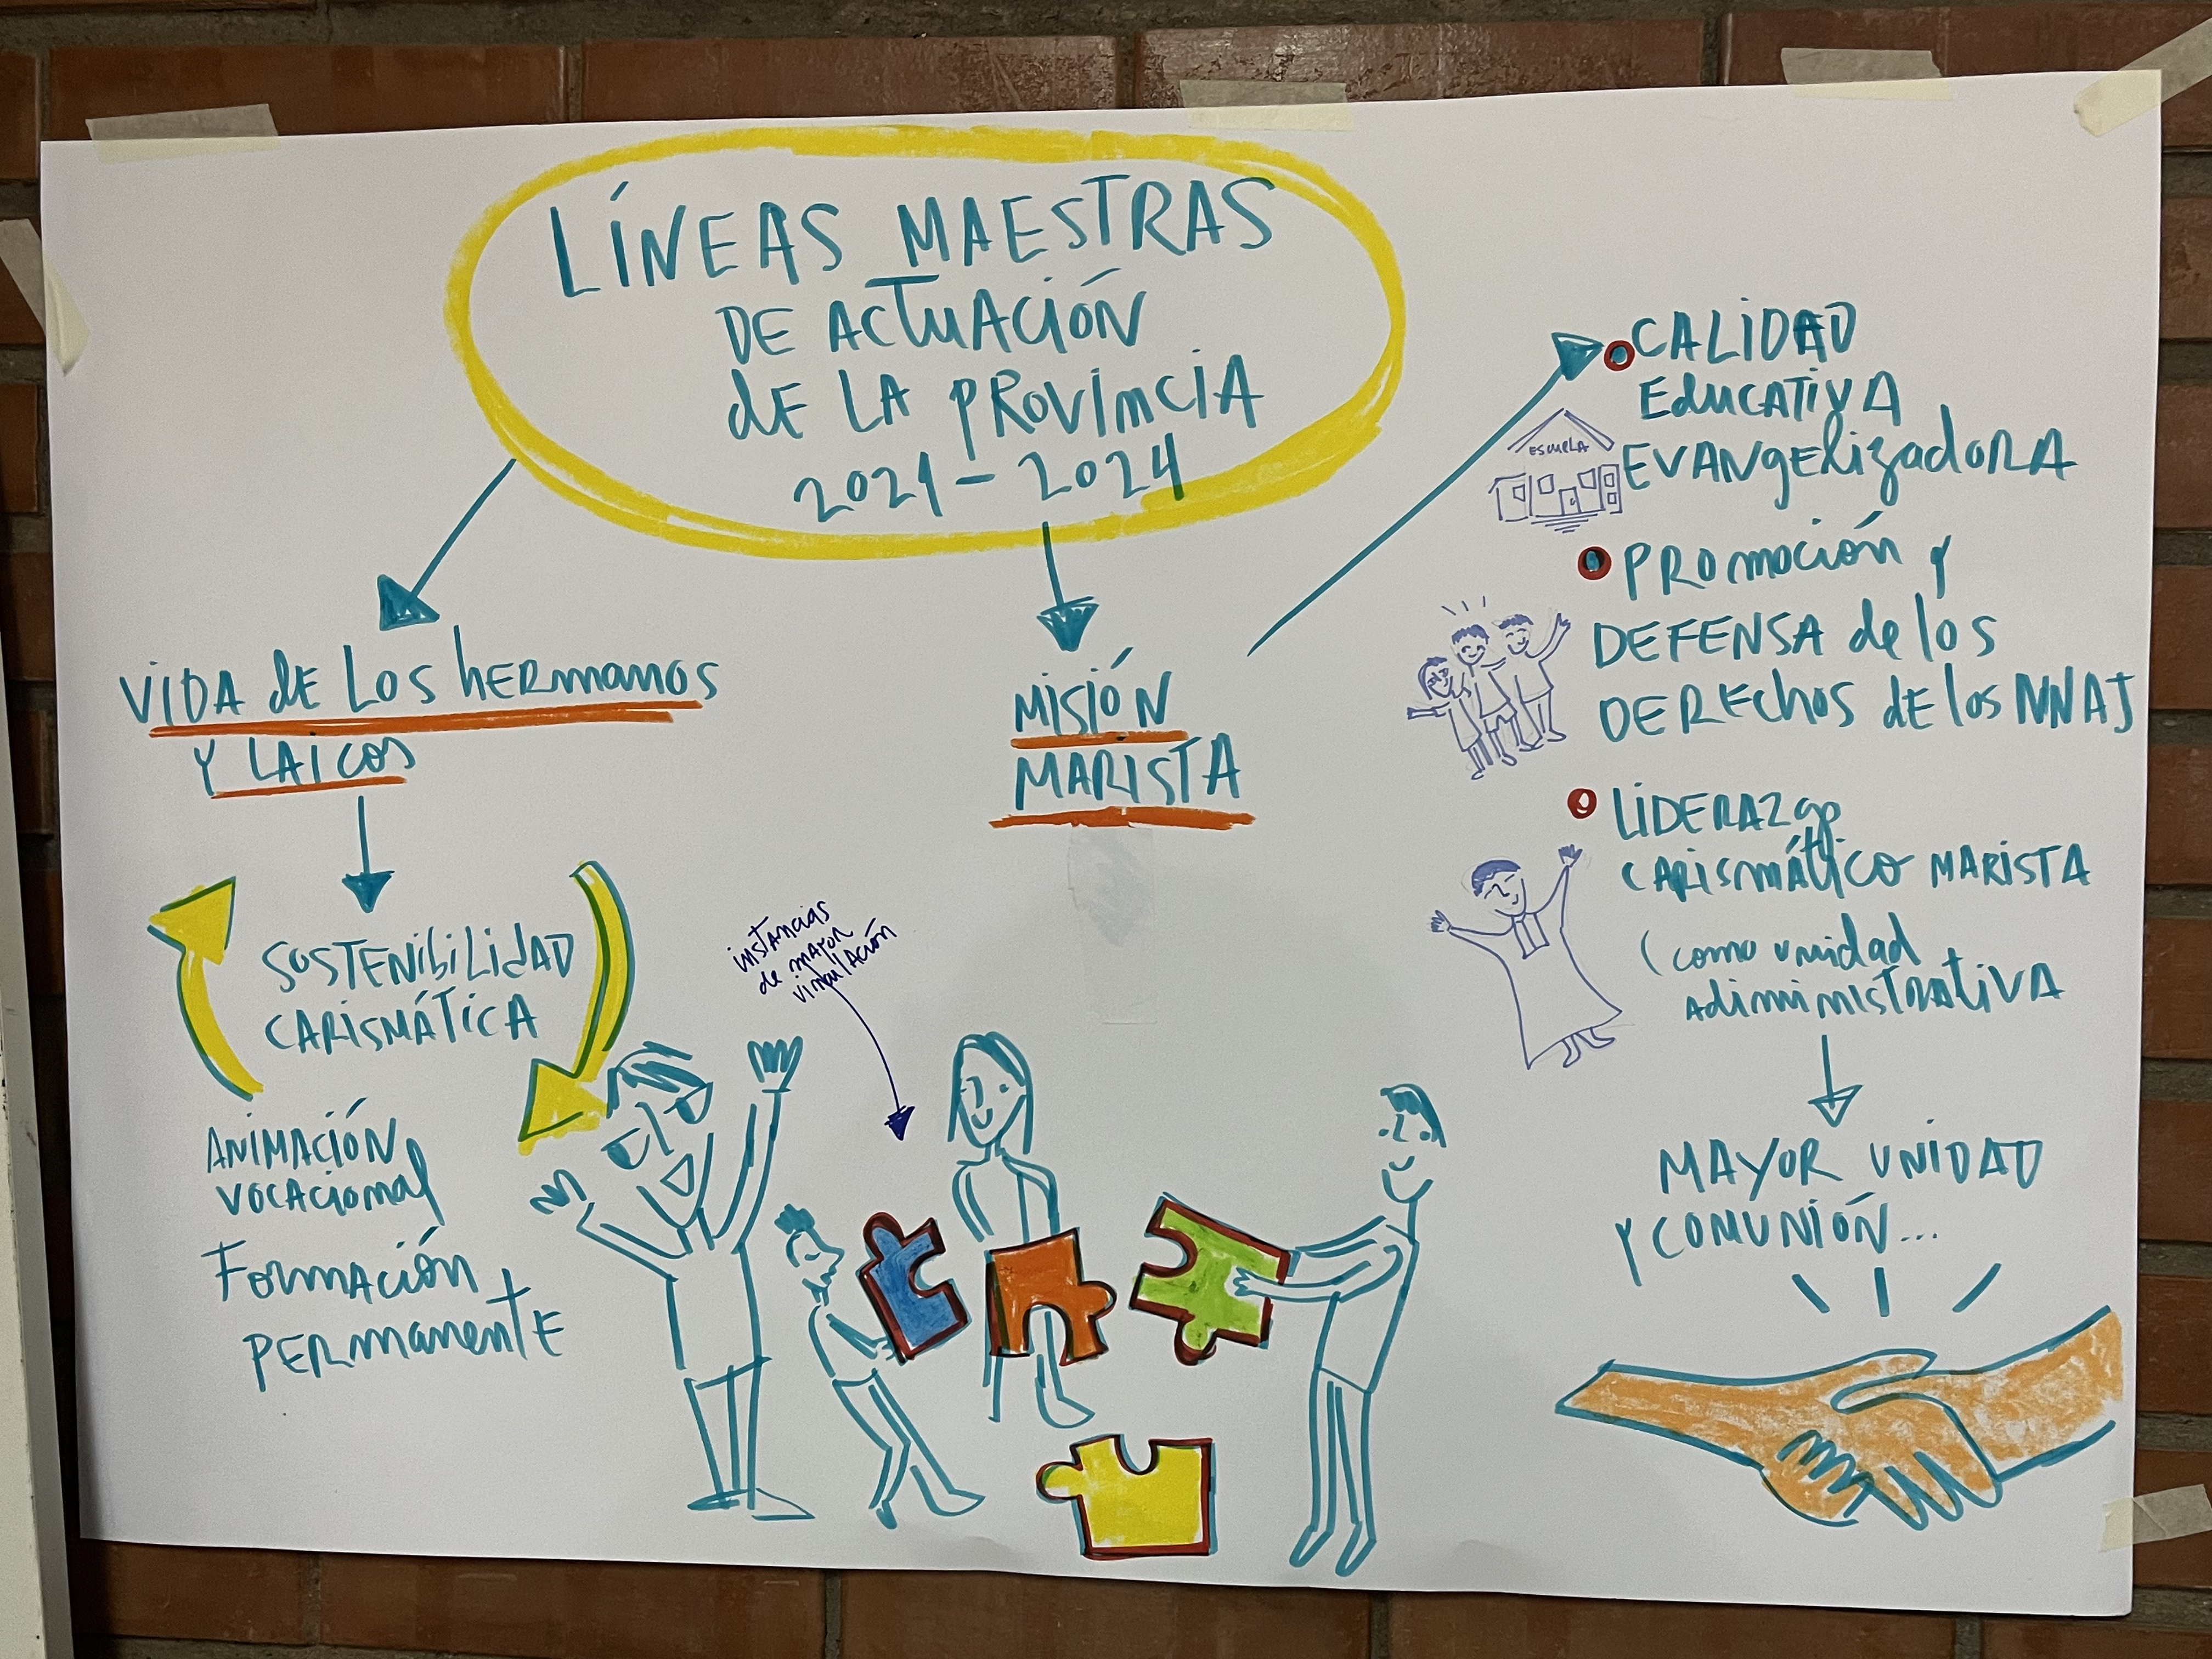 LÍNEAS MAESTRAS
DE ACTUACIÓN
DE LA PROVINCIA
2021-2024
VIDA DE LOS HERMANOS
Y LAICOS
SOSTENIBILIDAD
CARISMÁTICA
ANIMACIÓN
VOCACIONAL
FORMACIÓN
PERMANENTE
instancias
de mayor
vinculación
MISIÓN
MARISTA
CALIDAD
EDUCATIVA
EVANGELIZADORA
ESCUELA
PROMOCIÓN Y
DEFENSA de los
DERECHOS DE los NNAJ
LIDERAZgo
CARISMÁTICO MARISTA
(como unidad
Adiministrativa
MAYOR UNIDAD
Y COMUNIÓN...